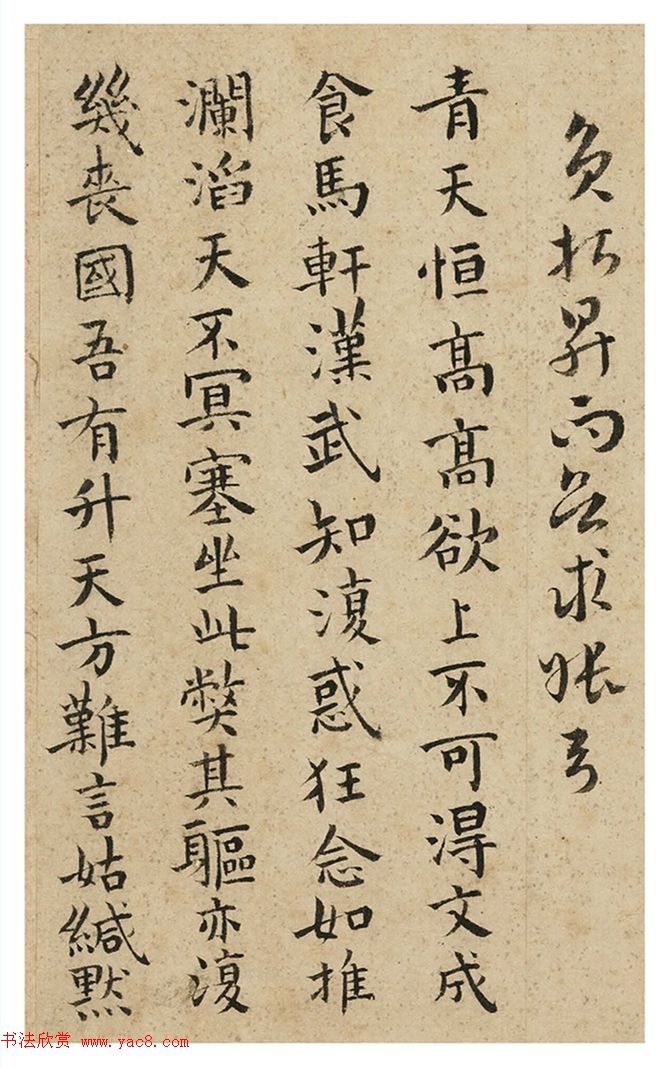 昇而求
青天恒高高欲上不可得文成
食馬軒漢武知復惑狂念如推
瀾滔天不冥塞坐此獘其軀亦復
幾喪國吾有升天方難言姑緘默
书法欣赏 www.yac8.com